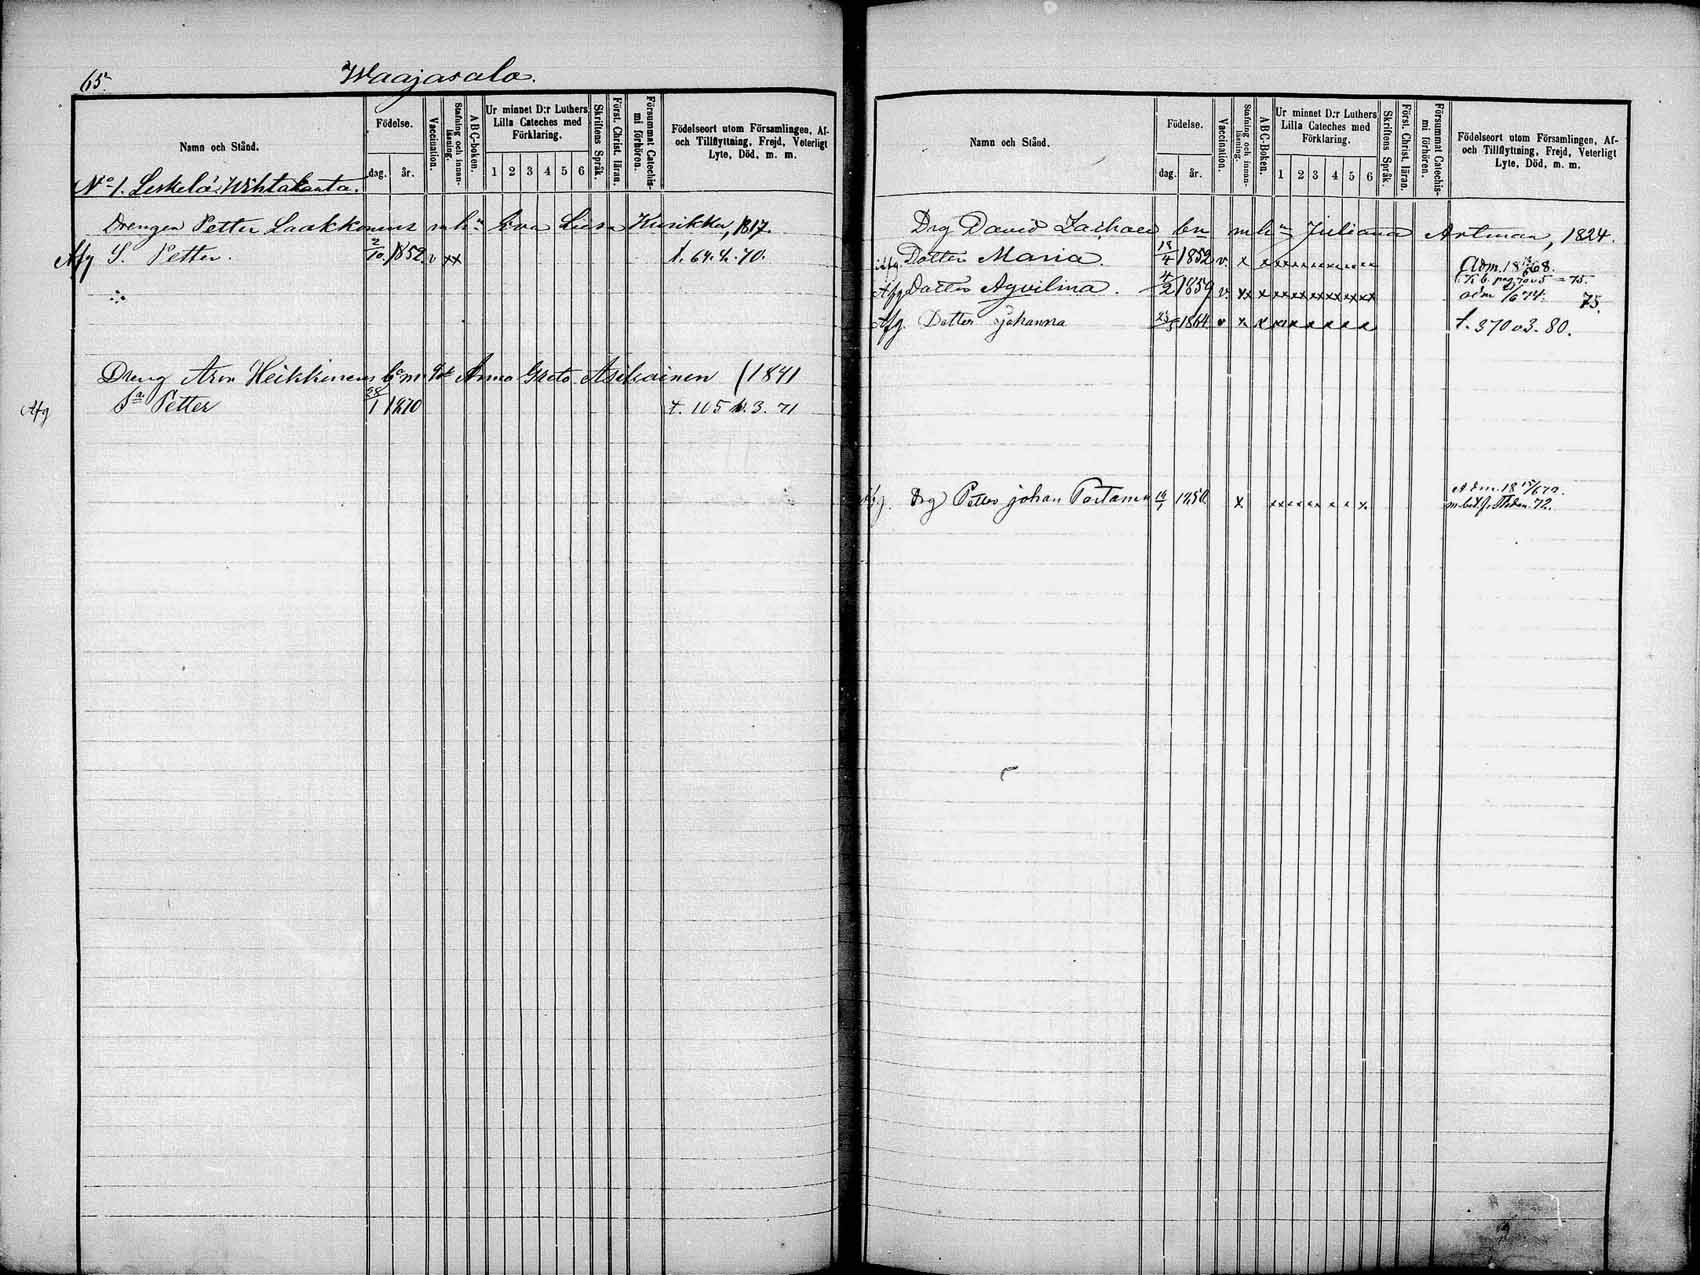 65.
Waajasalo.
Namn och Stånd.
Födelse.
dag.
år.
Vaccination.
Stafning och innanläsning.
ABC-boken.
Ur minnet D:r Luthers Lilla Cateches med Förklaring.
1 2 3 4 5 6
Skriftens Språk.
Först. Christ. läran.
Försummat Catechismi förhören.
Födelseort utom Församlingen, Af- och Tillflyttning, Frejd, Veterligt Lyte, Död, m. m.
No 1. Leskelä
Drengen Petter Laakkonens m hn Eva Lisa Kusikka, 1817.
Afg S. Petter. 2/10 1852. v xx f. 64. h. 70.
Dreng Aron Heikkinens Anna Greta Asikainen 1841
Afg Sn Petter 28/1 1870 f. 105 v. 3. 71
Namn och Stånd.
Födelse.
dag.
år.
Vaccination.
Stafning och innanläsning.
ABC-boken.
Ur minnet D:r Luthers Lilla Cateches med Förklaring.
1 2 3 4 5 6
Skriftens Språk.
Först. Christ. läran.
Försummat Catechismi förhören.
Födelseort utom Församlingen, Af- och Tillflyttning, Frejd, Veterligt Lyte, Död, m. m.
Drg David m hn Juliana Artman, 1824.
Afg. Dotter Maria. 18/4 1852 v. x x xxxxxxxxxx Adm. 18 68.
Afg Dotter Aqvilina. 4/2 1859 v. xx x xxxxxxxxxx adm 74. 75.
Afg. Dotter Johanna 1864 v x x xxxxxxx f. 370 v 3. 80.
Afg. Drg Petter Johan Partanen 16/1 1850. x xxxxxxxx Adm. 18 15/6 70.
72.